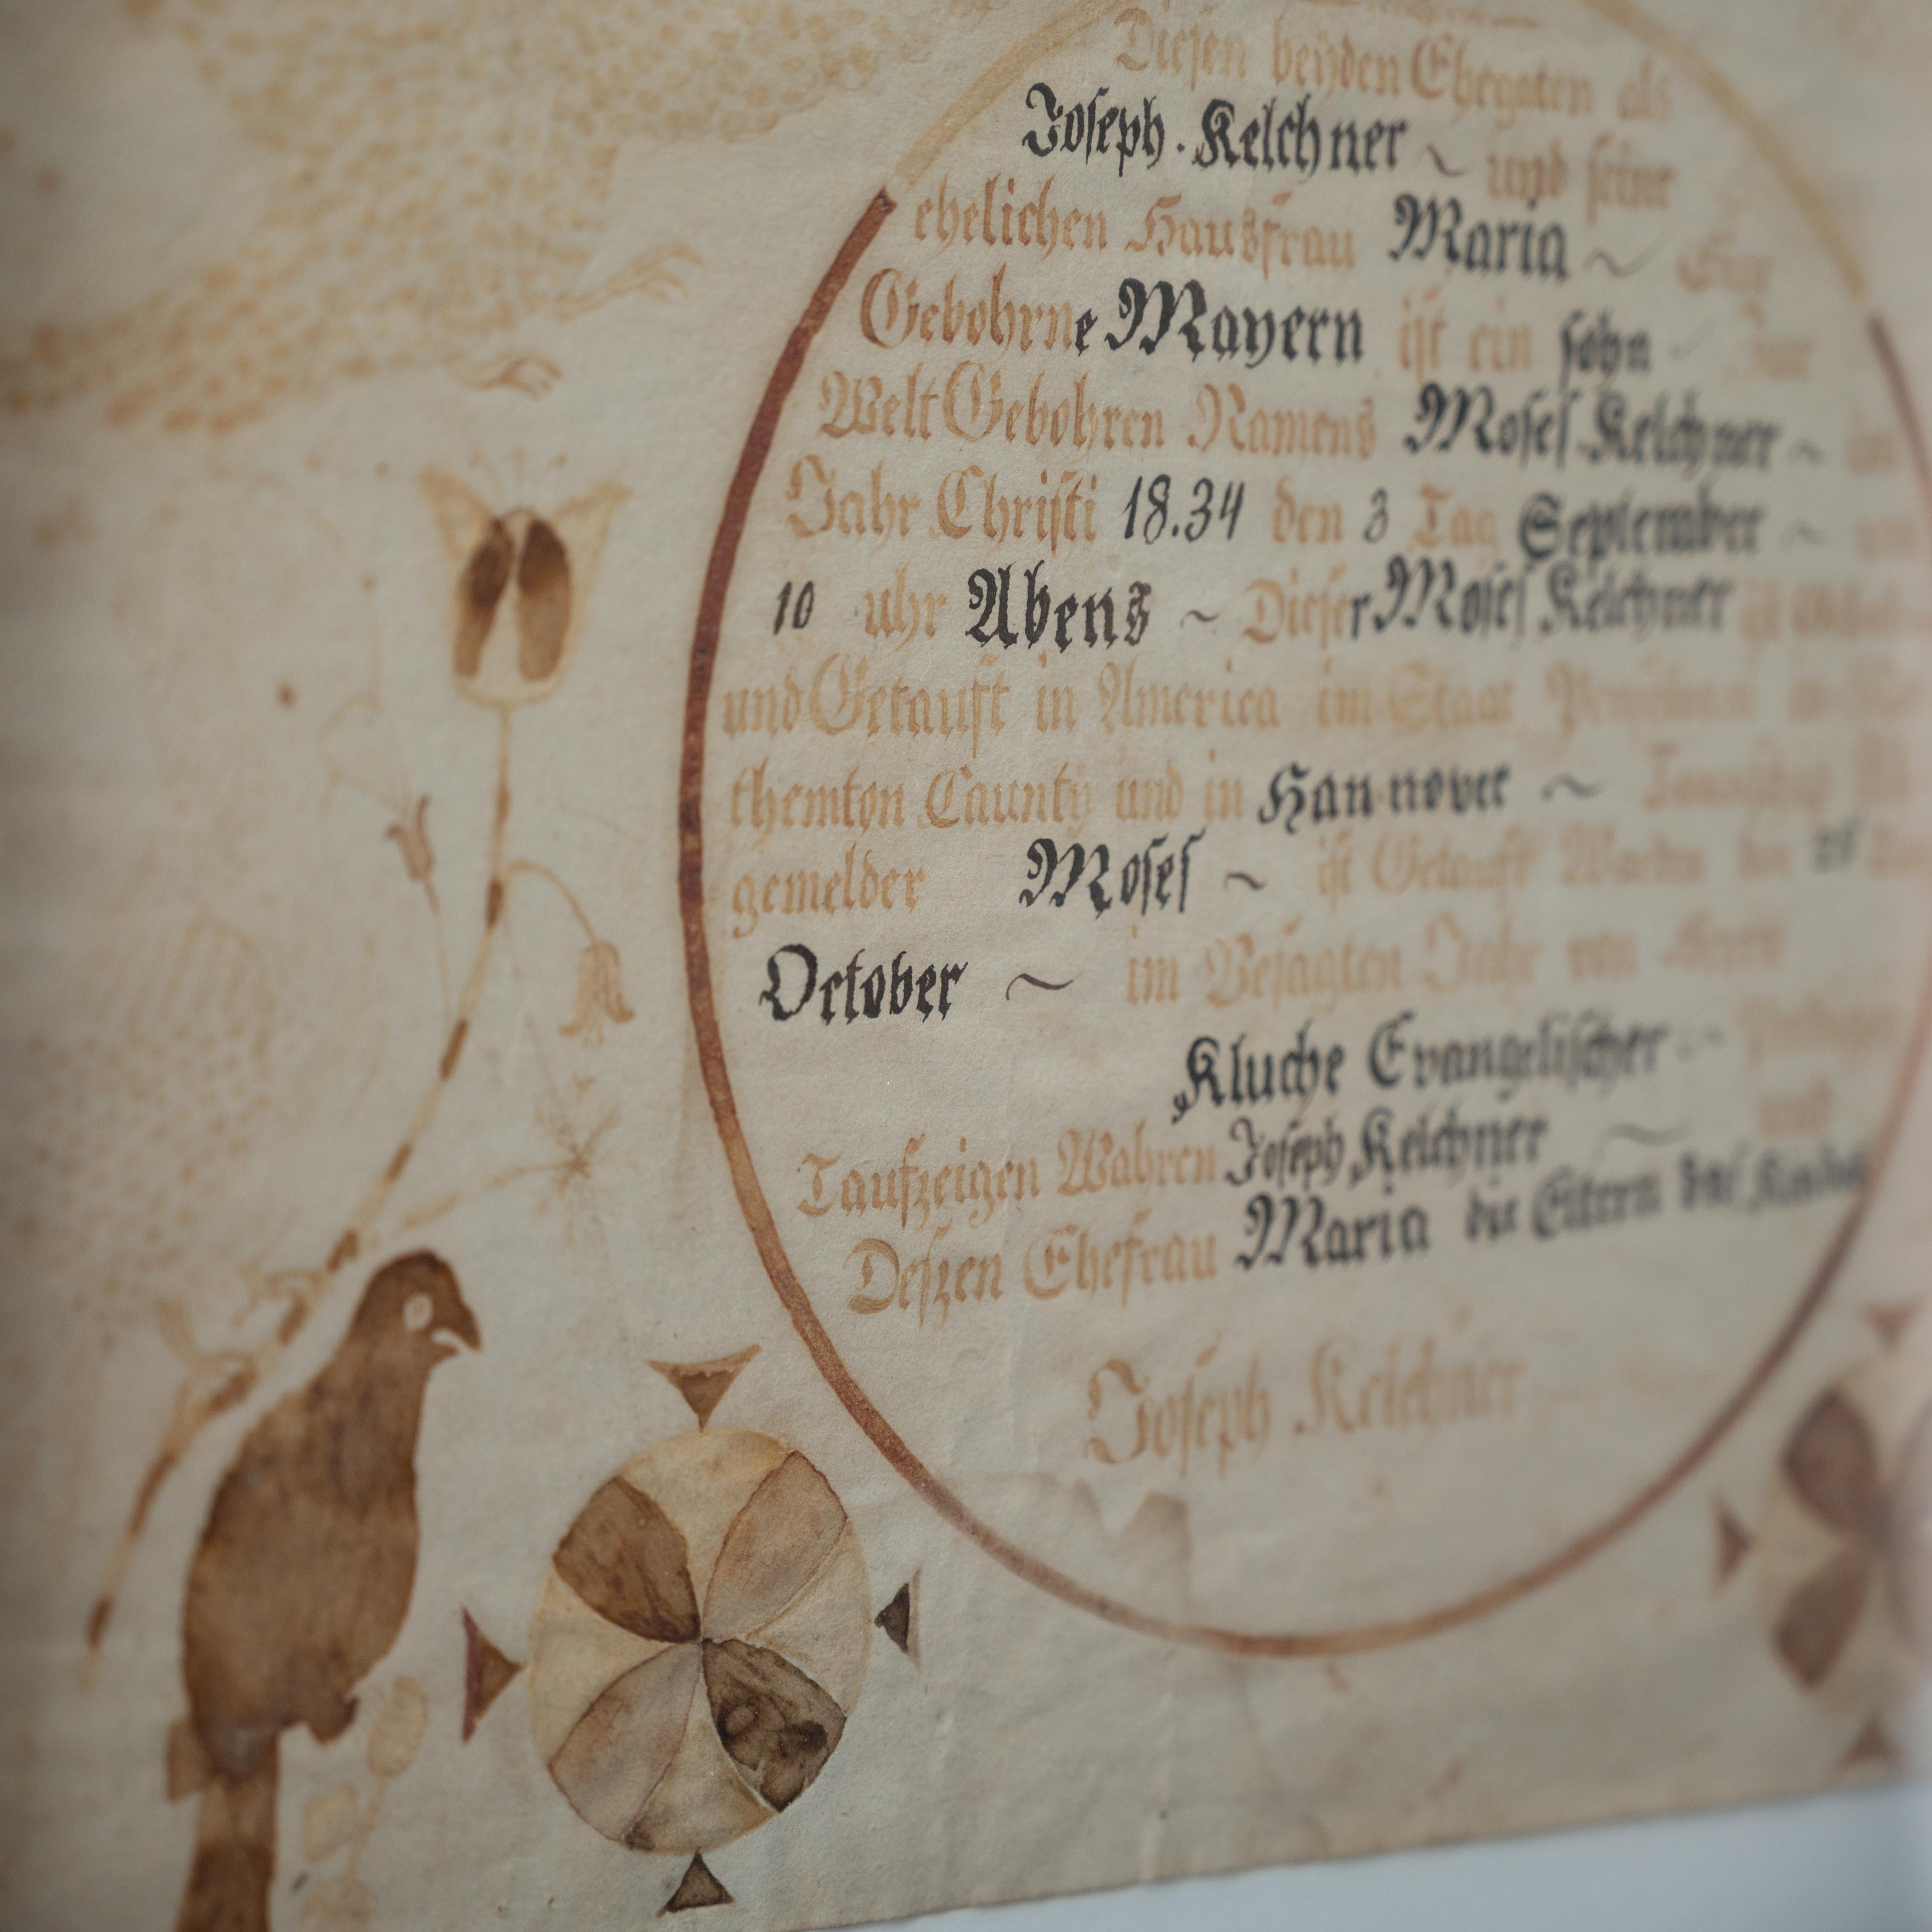 Dieſen beÿden Ehegaten als
Joſeph. Kelchner ~ und ſeine
ehelichen Hausfrau Maria ~ Eine
Gebohrne Mayern iſt ein ſohn
Welt Gebohren Namens Moſeſ Kelchner ~
Jahr Chriſti 18.34 den 3 Tag September ~
10 uhr Abens ~ Dieſer Moſeſ Kelchner iſt
und Getauft in America im Staat
themton Caunty und in Hannover ~
gemelder Moſeſ ~ iſt Getauft Worden den
October ~ im Beſagten Jahr von Herrn
Kluche Evangeliſcher
Taufzeigen Wahren Joſeph Kelchner ~ und
Deſzen Ehefrau Maria die Eltern deſ Kindeſ
Joſeph Kelchner